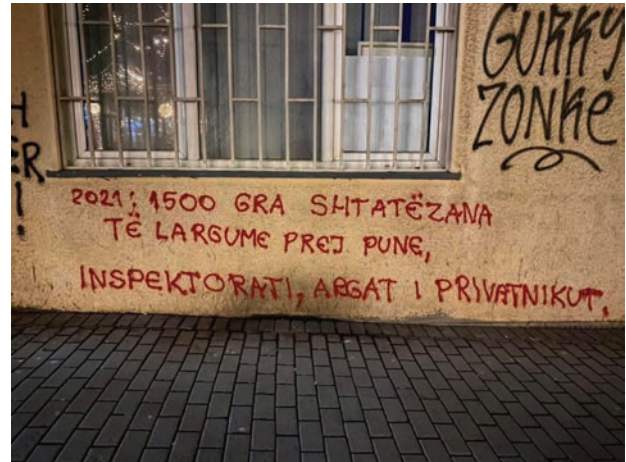 GURKY
ZONKE
H
ER
!
2021: 1500 GRA SHTATËZANA
TË LARGUME PREJ PUNE,
INSPEKTORATI, ARGAT I PRIVATNIKUT.